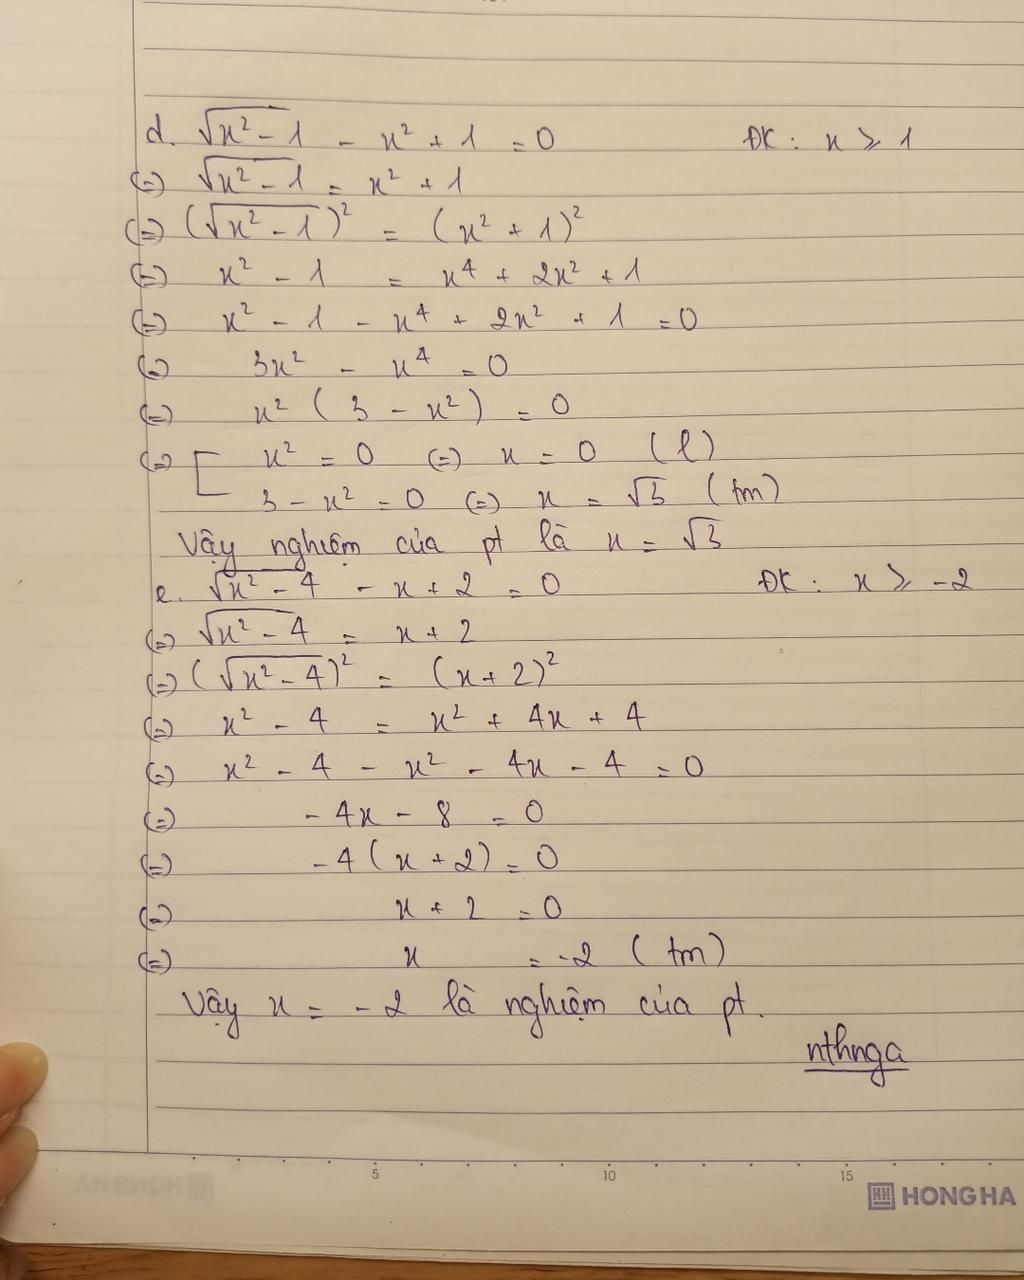 d. √(x² - 1) - x² + 1 = 0 ĐK : x ⩾ 1
(=) √(x² - 1) = x² + 1
(=) (√(x² - 1))² = (x² + 1)²
(=) x² - 1 = x⁴ + 2x² + 1
(=) x² - 1 - x⁴ + 2x² + 1 = 0
(=) 3x² - x⁴ = 0
(=) x² ( 3 - x² ) = 0
(=) [ x² = 0 (=) x = 0 (l)
3 - x² = 0 (=) x = √3 (tm)
Vậy nghiệm của pt là x = √3
e. √(x² - 4) - x + 2 = 0 ĐK : x ⩾ -2
(=) √(x² - 4) = x + 2
(=) (√(x² - 4))² = (x + 2)²
(=) x² - 4 = x² + 4x + 4
(=) x² - 4 - x² - 4x - 4 = 0
(=) - 4x - 8 = 0
(=) - 4 ( x + 2 ) = 0
(=) x + 2 = 0
(=) x = -2 ( tm )
Vậy x = - 2 là nghiệm của pt.
nthnga
5 10 15
HONG HA